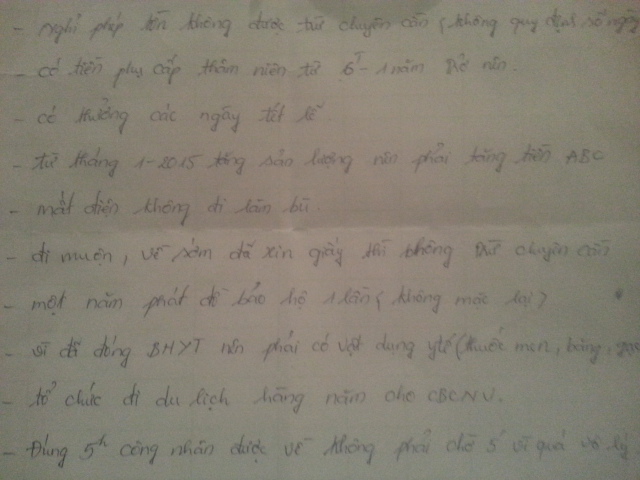 - Nghỉ phép tồn không được trừ chuyên cần (không quy định số ngày
- có tiền phụ cấp thâm niên từ 6T - 1 năm trở nên.
- có thưởng các ngày tết lễ.
- từ tháng 1-2015 tăng sản lượng nên phải tăng tiền ABC
- mất điện không đi làm bù.
- đi muộn, về sớm đã xin giấy thì không trừ chuyên cần
- một năm phát đồ bảo hộ 1 lần (không mặc lại)
- vì đã đóng BHYT nên phải có vật dụng y tế (thuốc men, băng,
- tổ chức đi du lịch hàng năm cho CBCNV.
- Đúng 5h công nhân được về không phải chờ 5' vì quá vô lý.